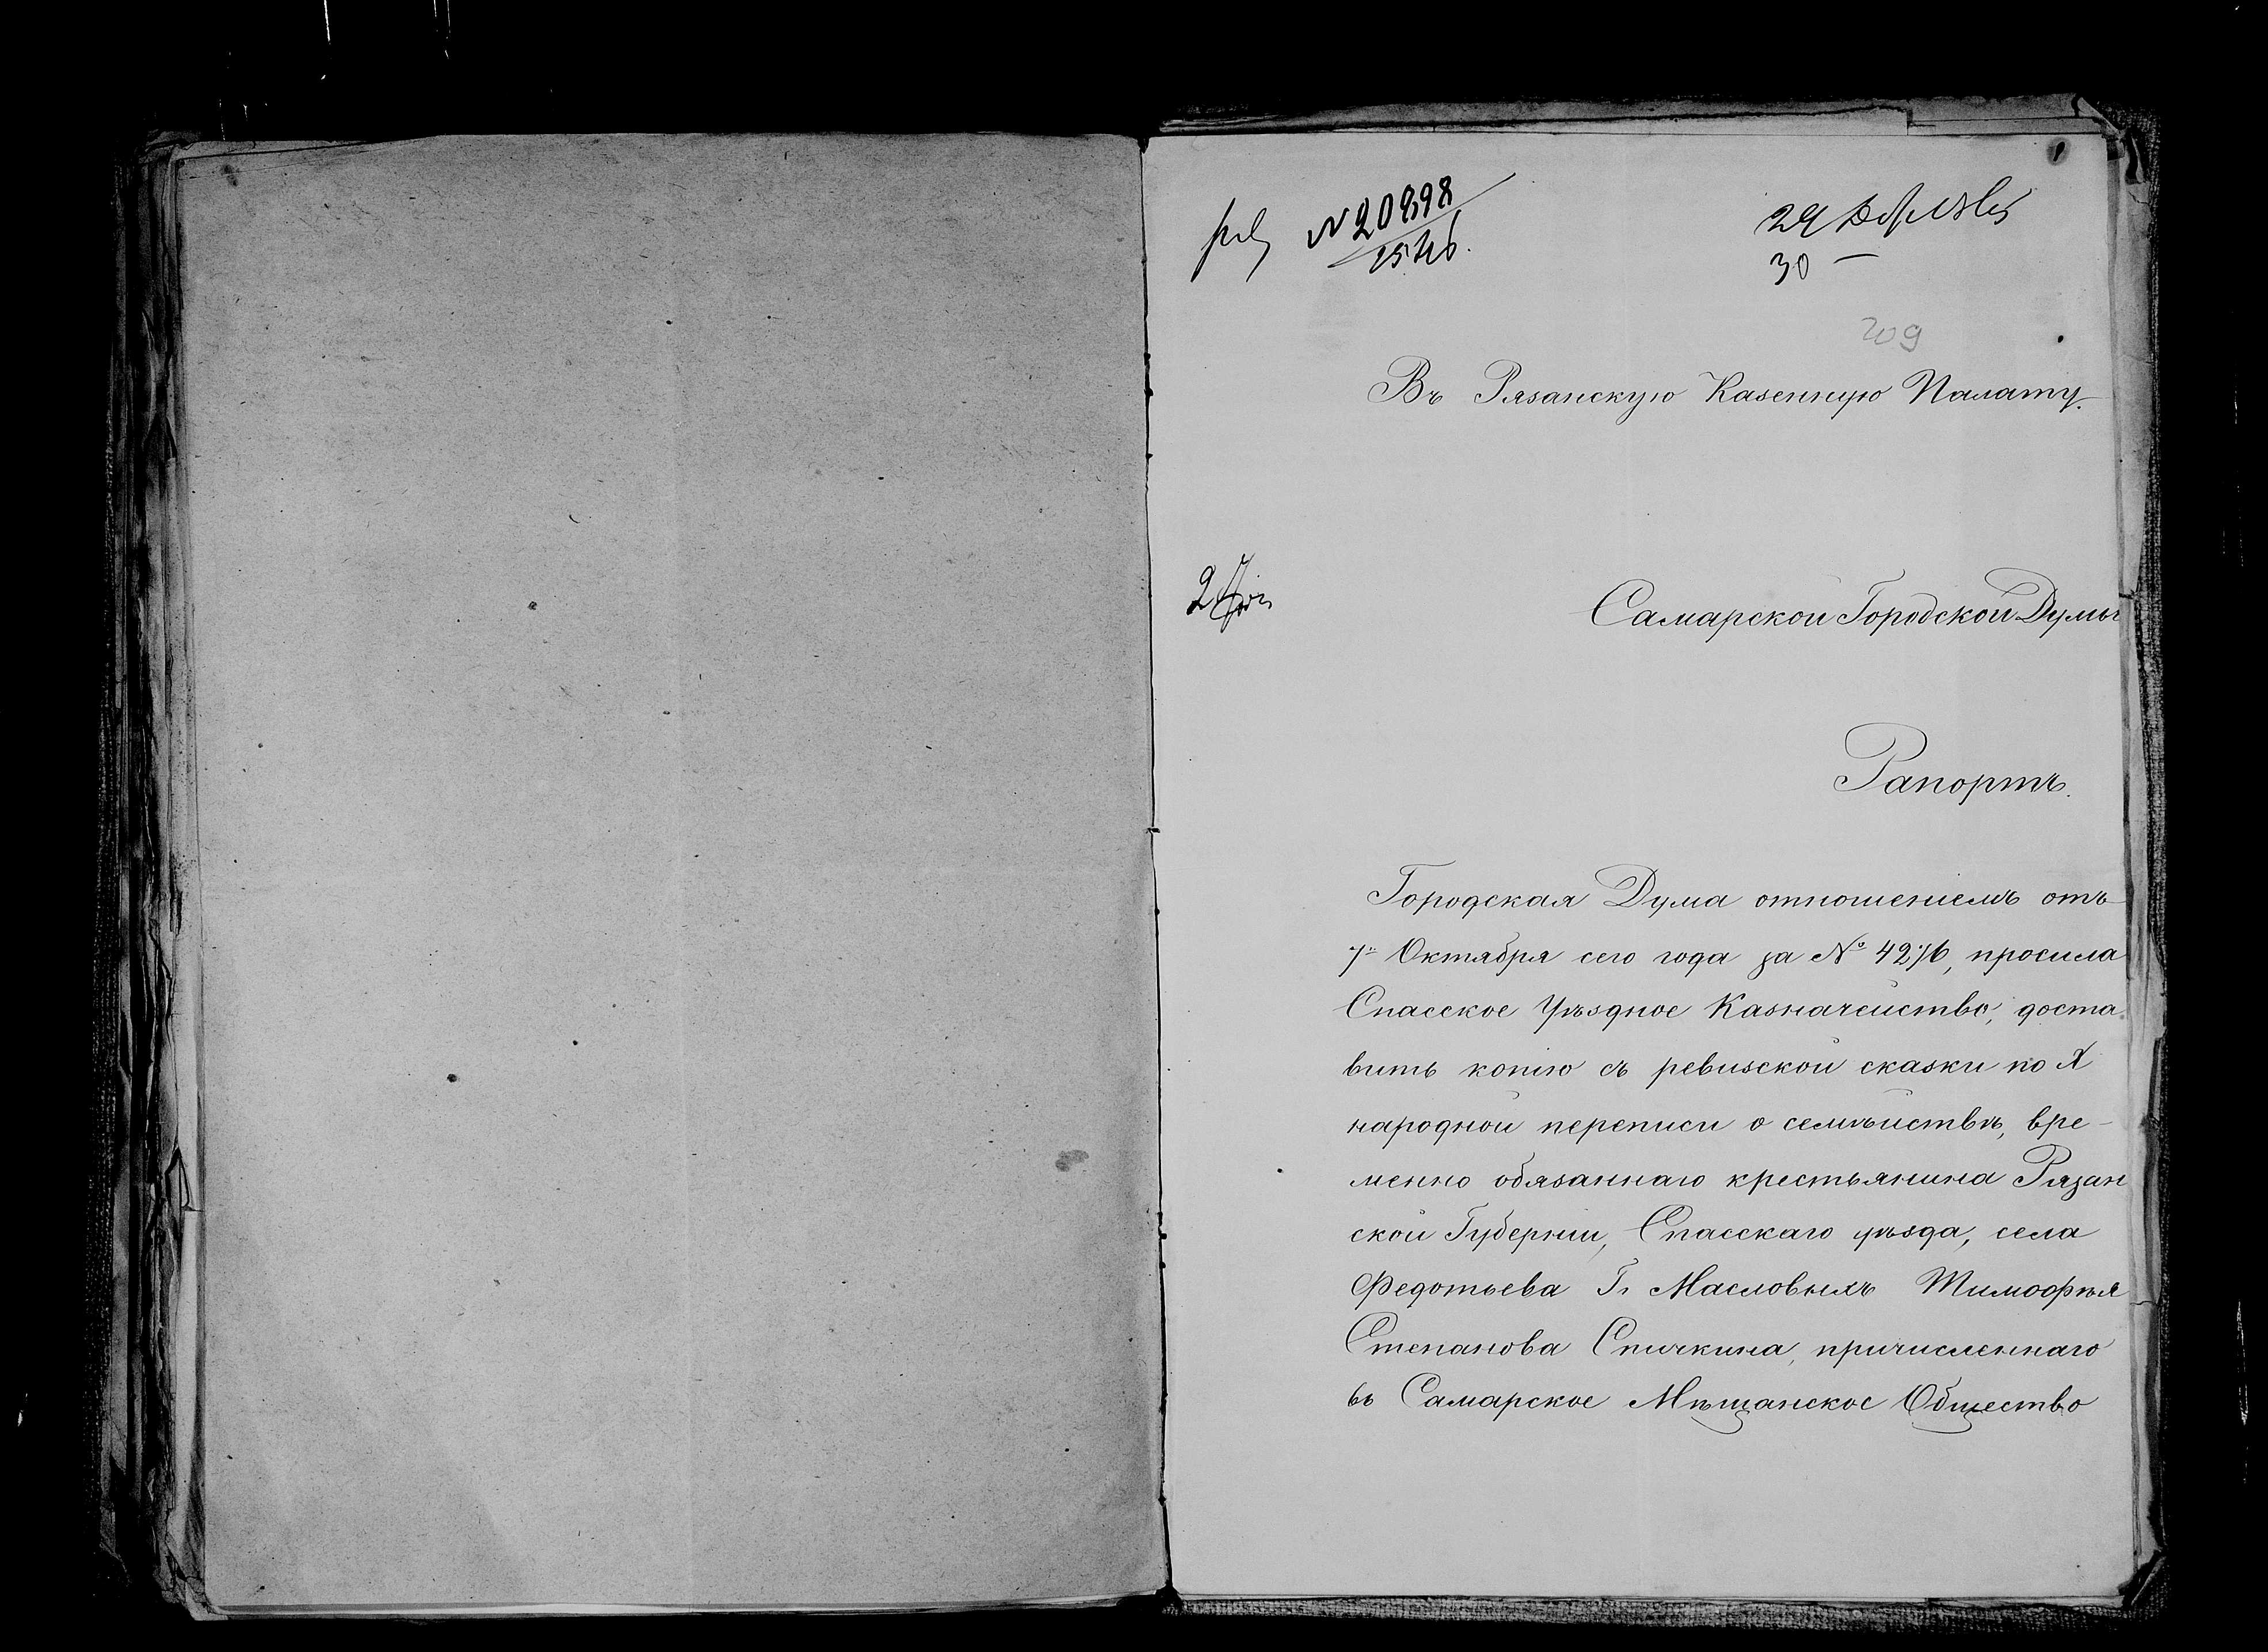 № 20898
30 —
209
Въ Рязанскую Казенную Палату.
Самарской Городской Думы
Рапортъ.
Городская Дума отношеніемъ отъ
7го Октября сего года за № 4276, просила
Спасское Уѣздное Казначейство, доста
вить копію съ ревизской сказки по X
народной переписи о семѣйствѣ, вре-
менно обязаннаго крестьянина Рязан
ской Губерніи, Спасскаго уѣзда, села
Федотьева Гг Масловыхъ Тимофѣя
Степанова Спичкина, причисленнаго
въ Самарское Мѣщанское Общество